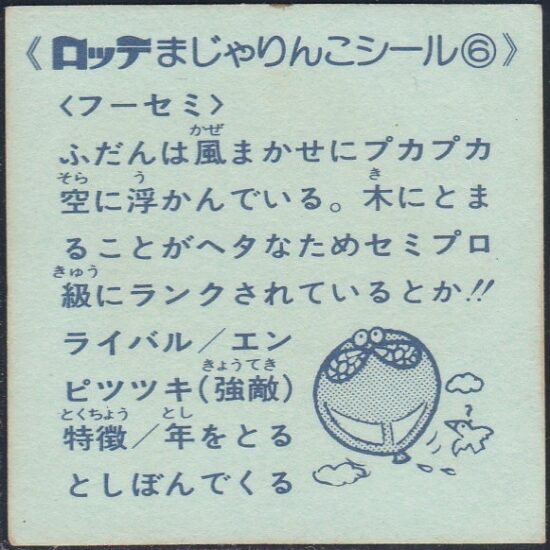 《ロッテまじゃりんこシール⑥》
〈フーセミ〉
ふだんは風まかせにプカプカ
空に浮かんでいる。木にとま
ることがヘタなためセミプロ
級にランクされているとか!!
ライバル／エン
ピツツキ(強敵)
特徴／年をとる
としぼんでくる